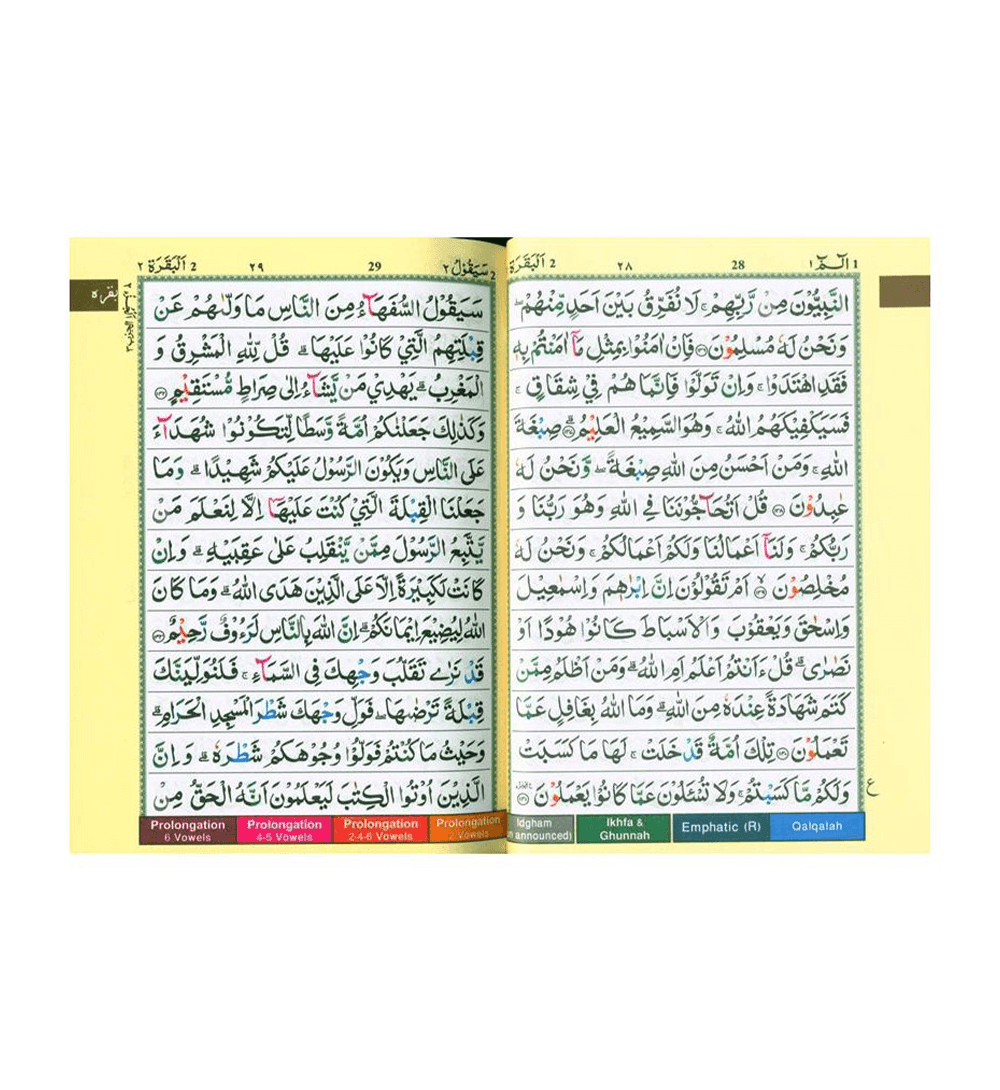 1 الٓمّٓ ١ 28 ٢٨ 2 اَلْبَقَرَة
النَّبِيُّوْنَ مِنْ رَّبِّهِمْ ۚ لَا نُفَرِّقُ بَيْنَ اَحَدٍ مِّنْهُمْ ۖ
وَنَحْنُ لَهٗ مُسْلِمُوْنَ ۝١٣٦ فَاِنْ اٰمَنُوْا بِمِثْلِ مَآ اٰمَنْتُمْ بِهٖ
فَقَدِ اهْتَدَوْا ۚ وَاِنْ تَوَلَّوْا فَاِنَّمَا هُمْ فِيْ شِقَاقٍ ۚ
فَسَيَكْفِيْكَهُمُ اللّٰهُ ۚ وَهُوَ السَّمِيْعُ الْعَلِيْمُ ۝١٣٧ صِبْغَةَ
اللّٰهِ ۚ وَمَنْ اَحْسَنُ مِنَ اللّٰهِ صِبْغَةً ۖ وَّنَحْنُ لَهٗ
عٰبِدُوْنَ ۝١٣٨ قُلْ اَتُحَآجُّوْنَنَا فِي اللّٰهِ وَهُوَ رَبُّنَا وَ
رَبُّكُمْ ۚ وَلَنَآ اَعْمَالُنَا وَلَكُمْ اَعْمَالُكُمْ ۚ وَنَحْنُ لَهٗ
مُخْلِصُوْنَ ۝١٣٩ اَمْ تَقُوْلُوْنَ اِنَّ اِبْرٰهٖمَ وَاِسْمٰعِيْلَ
وَاِسْحٰقَ وَيَعْقُوْبَ وَالْاَسْبَاطَ كَانُوْا هُوْدًا اَوْ
نَصٰرٰى ۗ قُلْ ءَاَنْتُمْ اَعْلَمُ اَمِ اللّٰهُ ۗ وَمَنْ اَظْلَمُ مِمَّنْ
كَتَمَ شَهَادَةً عِنْدَهٗ مِنَ اللّٰهِ ۗ وَمَا اللّٰهُ بِغَافِلٍ عَمَّا
تَعْمَلُوْنَ ۝١٤٠ تِلْكَ اُمَّةٌ قَدْ خَلَتْ ۚ لَهَا مَا كَسَبَتْ
وَلَكُمْ مَّا كَسَبْتُمْ ۚ وَلَا تُسْـَٔلُوْنَ عَمَّا كَانُوْا يَعْمَلُوْنَ ۝١٤١
ع
2 سَيَقُوْلُ ٢ 29 ٢٩ 2 اَلْبَقَرَة ٢
سَيَقُوْلُ السُّفَهَآءُ مِنَ النَّاسِ مَا وَلّٰىهُمْ عَنْ
قِبْلَتِهِمُ الَّتِيْ كَانُوْا عَلَيْهَا ۗ قُلْ لِّلّٰهِ الْمَشْرِقُ وَ
الْمَغْرِبُ ۗ يَهْدِيْ مَنْ يَّشَآءُ اِلٰى صِرَاطٍ مُّسْتَقِيْمٍ ۝١٤٢
وَكَذٰلِكَ جَعَلْنٰكُمْ اُمَّةً وَّسَطًا لِّتَكُوْنُوْا شُهَدَآءَ
عَلَى النَّاسِ وَيَكُوْنَ الرَّسُوْلُ عَلَيْكُمْ شَهِيْدًا ۗ وَمَا
جَعَلْنَا الْقِبْلَةَ الَّتِيْ كُنْتَ عَلَيْهَآ اِلَّا لِنَعْلَمَ مَنْ
يَّتَّبِعُ الرَّسُوْلَ مِمَّنْ يَّنْقَلِبُ عَلٰى عَقِبَيْهِ ۗ وَاِنْ
كَانَتْ لَكَبِيْرَةً اِلَّا عَلَى الَّذِيْنَ هَدَى اللّٰهُ ۗ وَمَا كَانَ
اللّٰهُ لِيُضِيْعَ اِيْمَانَكُمْ ۗ اِنَّ اللّٰهَ بِالنَّاسِ لَرَءُوْفٌ رَّحِيْمٌ ۝١٤٣
قَدْ نَرٰى تَقَلُّبَ وَجْهِكَ فِى السَّمَآءِ ۚ فَلَنُوَلِّيَنَّكَ
قِبْلَةً تَرْضٰىهَا ۖ فَوَلِّ وَجْهَكَ شَطْرَ الْمَسْجِدِ الْحَرَامِ ۗ
وَحَيْثُ مَا كُنْتُمْ فَوَلُّوْا وُجُوْهَكُمْ شَطْرَهٗ ۗ وَاِنَّ
الَّذِيْنَ اُوْتُوا الْكِتٰبَ لَيَعْلَمُوْنَ اَنَّهُ الْحَقُّ مِنْ
Prolongation Prolongation Prolongation Prolongation
6 Vowels 4-5 Vowels 2-4-6 Vowels 2 Vowels
Idgham Ikhfa & Emphatic (R) Qalqalah
announced) Ghunnah